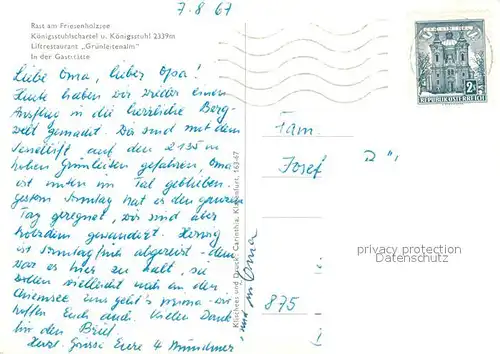 7.8.67
Rast am Friesenholzsee
Königstuhlschartel u. Königsstuhl 2339m
Liftrestaurant „Grünleitenalm"
In der Gaststätte
Liebe Oma, lieber Opa!
Heute haben wir wieder einen
Ausflug in die herrliche Berg-
welt gemacht. Wir sind mit dem
Sessellift auf den 2135 m
hohen Grünleiten gefahren, Oma
ist unten im Tal geblieben.
Gestern Sonntag hat es den ganzen
Tag geregnet, wir sind aber
trotzdem gewandert. Herwig
ist Sonntag früh abgereist - dem
war es hier zu kalt, sie
wollen vielleicht noch an den
Chiemsee. Uns geht's prima - wir
hoffen Euch auch. Vielen Dank
für den Brief.
Herzl. Grüsse Eure 4 Münchner
und in Oma
Klischees und Druck: Carinthia, Klagenfurt, 163-67
2S
REPUBLIK ÖSTERREICH
Fam.
Josef
875
privacy protection
Datenschutz